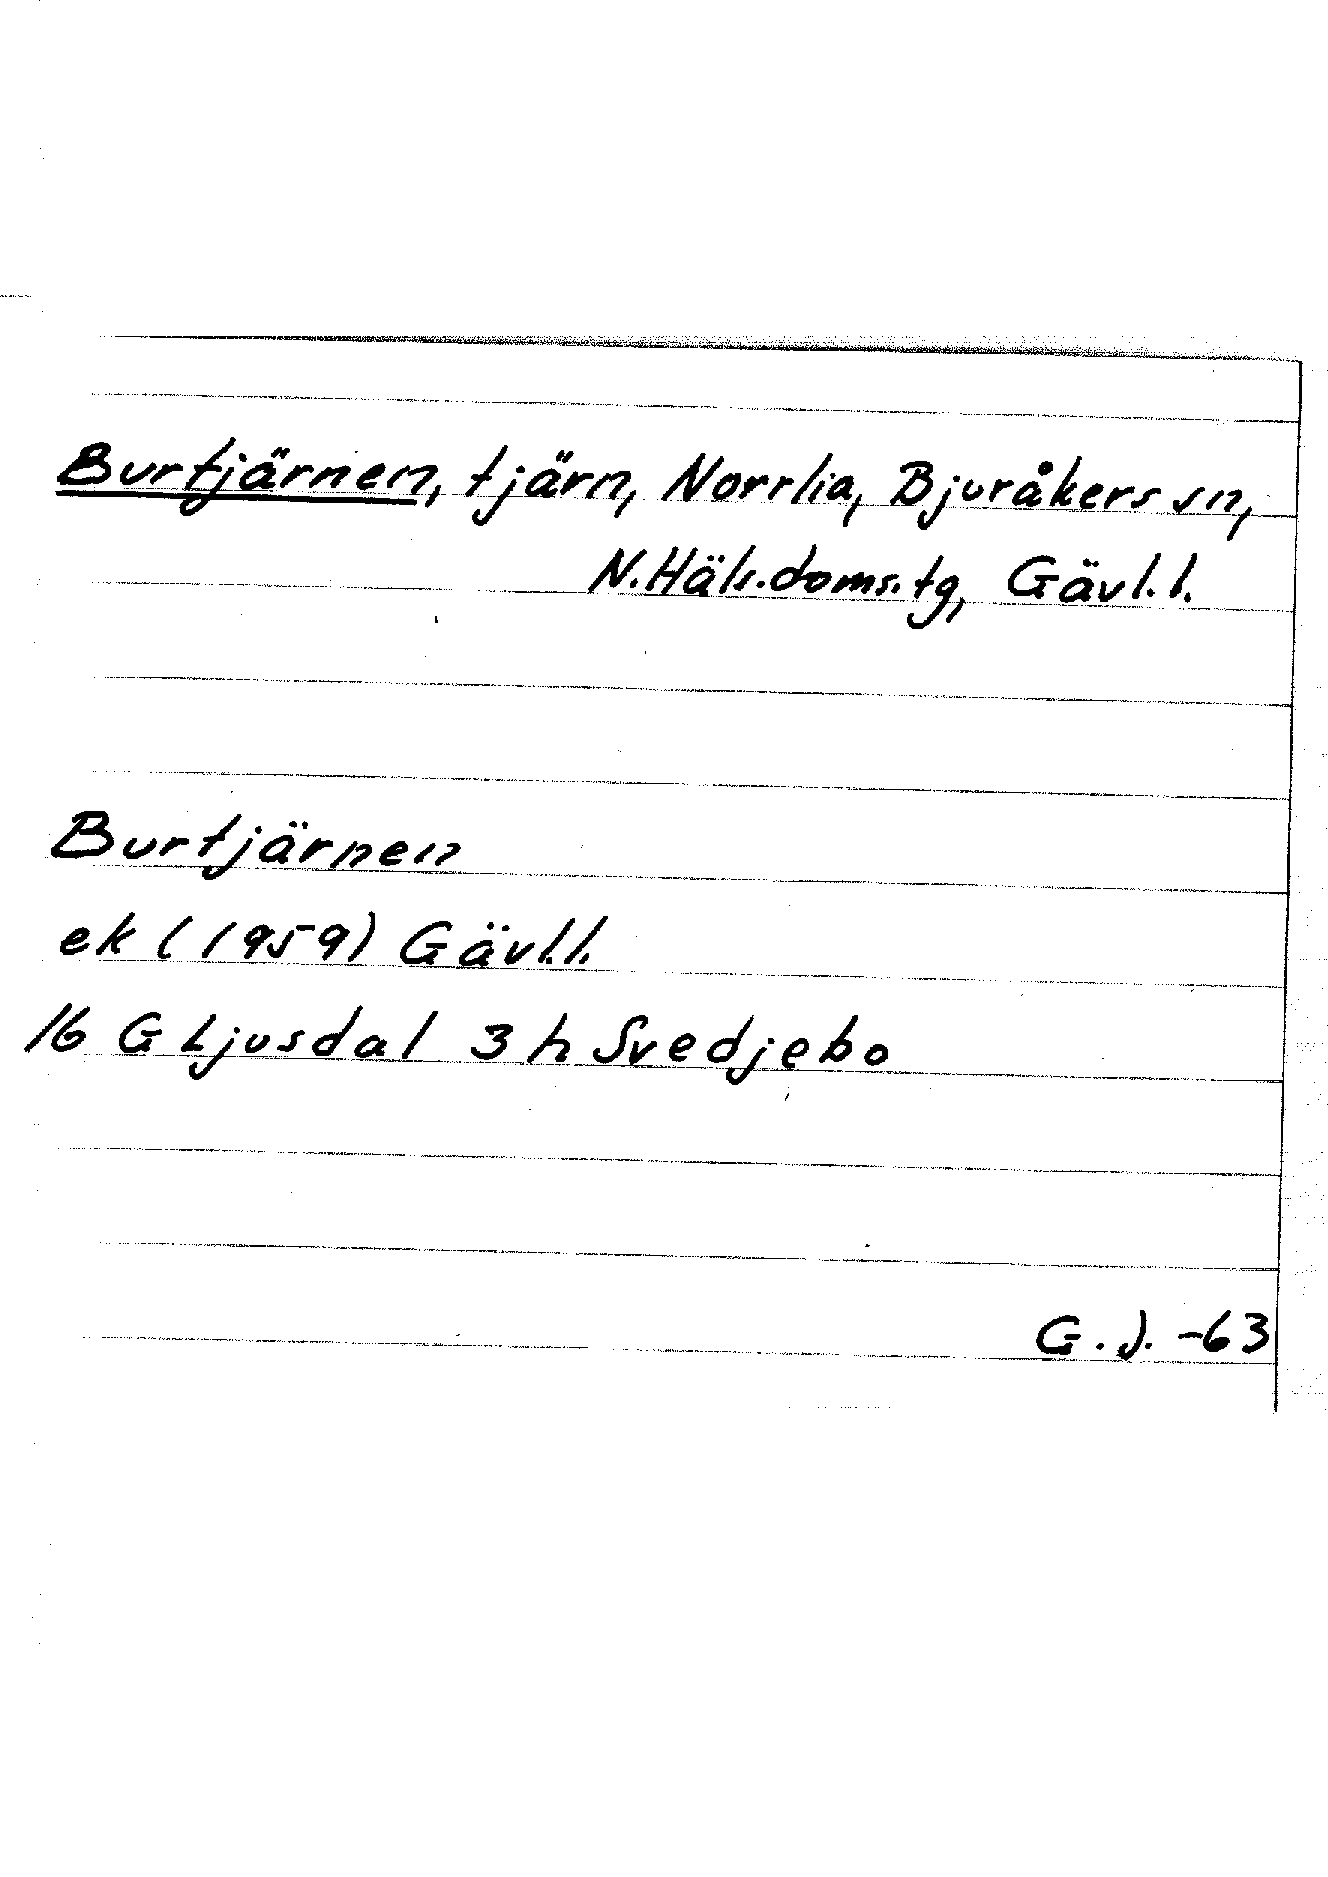 Burtjärnen, tjärn, Norrlia, Bjuråkers sn,
N.Häls.doms.tg, Gävl.l.
Burtjärnen
ek (1959) Gävl.l.
16 G Ljusdal 3 h Svedjebo
G.J. -63